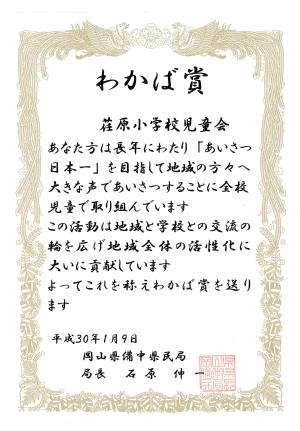 わかば賞
荏原小学校児童会
あなた方は長年にわたり「あいさつ
日本一」を目指して地域の方々へ
大きな声であいさつすることに全校
児童で取り組んでいます
この活動は地域と学校との交流の
輪を広げ地域全体の活性化に
大いに貢献しています
よってこれを称えわかば賞を送り
ます
平成30年1月9日
岡山県備中県民局
局長 石原伸一